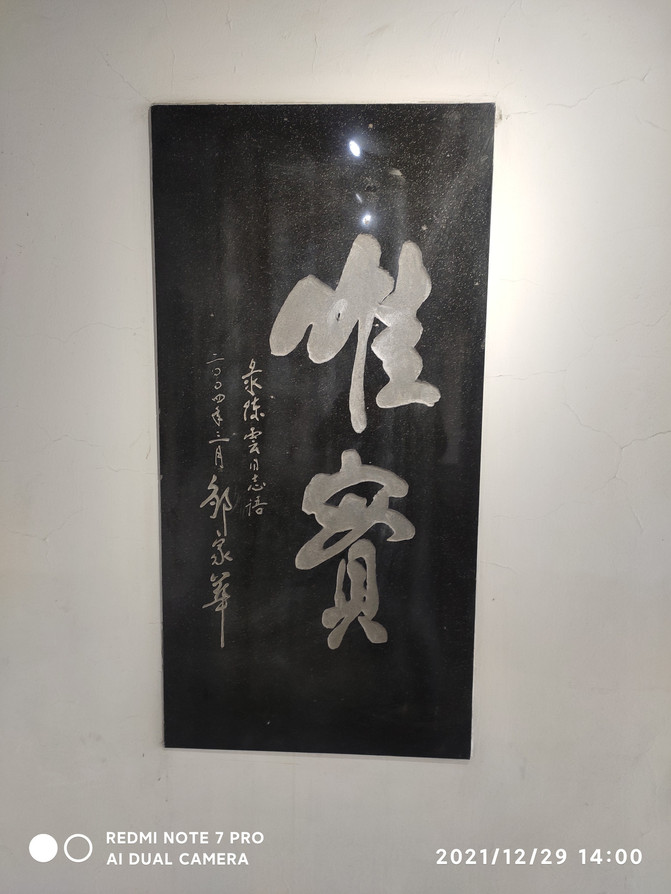 唯實
录陳雲同志語
二〇〇四年三月
鄒家華
REDMI NOTE 7 PRO
AI DUAL CAMERA
2021/12/29 14:00